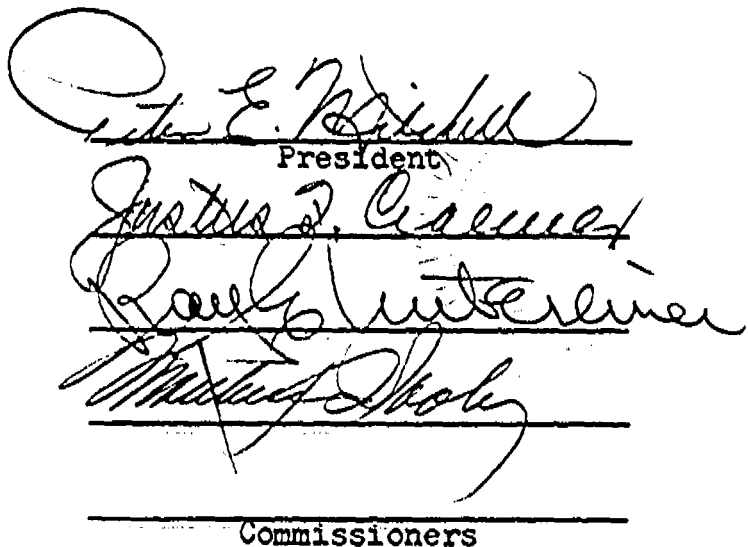 Peter E. Mitchell
President
Justus F. Craemer
Ray E. Untereiner
Commissioners